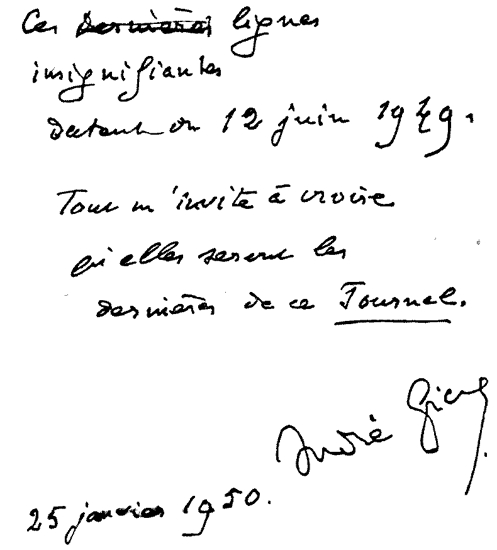 Ces dernières lignes
insignifiantes
datent du 12 juin 1949.
Tout m'invite à croire
qu'elles seront les
dernières de ce Journal.
André Gide
25 janvier 1950.